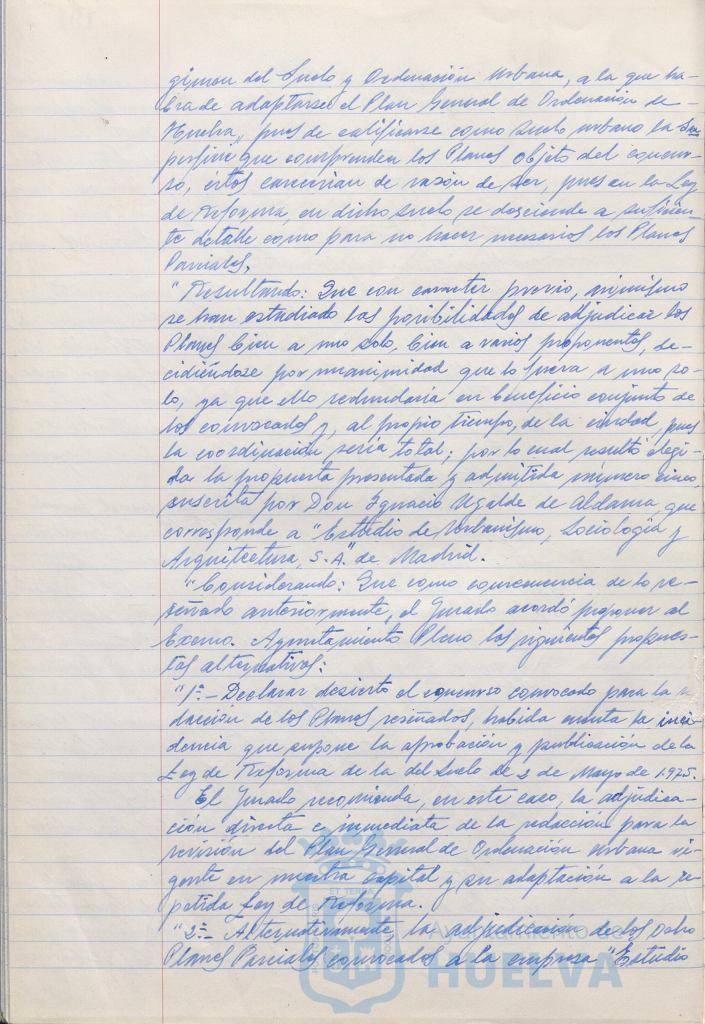 gimen del Suelo y Ordenación Urbana, a la que ha-
brá de adaptarse el Plan General de Ordenación de
Huelva, pues de calificarse como suelo urbano la su
perficie que comprenden los Planes objeto del concur-
so, éstos carecerían de razón de ser, pues en la Ley
de Reforma, en dicho suelo se desciende a suficien-
te detalle como para no hacer necesarios los Planes
Parciales,
"Resultando: Que con caracter previo, asimismo
se han estudiado las posibilidades de adjudicar los
Planes bien a uno solo, bien a varios proponentes, de-
cidiéndose por unanimidad que lo fuera a uno so-
lo, ya que ello redundaría en beneficio conjunto de
los convocados y, al propio tiempo, de la ciudad, pues
la coordinación sería total; por lo cual resultó elegi-
da la propuesta presentada y admitida número cinco,
suscrita por Don Ignacio Ugalde de Aldama, que
corresponde a "Estudio de Urbanismo, Sociología y
Arquitectura, S.A." de Madrid.
"Considerando: Que como consecuencia de lo re-
señado anteriormente, el Jurado acordó proponer al
Excmo. Ayuntamiento Pleno las siguientes propues-
tas alternativas:
"1ª.- Declarar desierto el concurso convocado para la re
dacción de los Planes reseñados, habida cuenta la inci-
dencia que supone la aprobación y publicación de la
Ley de Reforma de la del Suelo de 2 de Mayo de 1.975.
El Jurado recomienda, en este caso, la adjudica-
ción directa e inmediata de la redacción para la
revisión del Plan General de Ordenación Urbana vi-
gente en nuestra capital y su adaptación a la re-
petida Ley de Reforma.
"2ª.- Alternativamente, la adjudicación de los ocho
Planes Parciales convocados a la empresa "Estudio
Ayuntamiento de
HUELVA